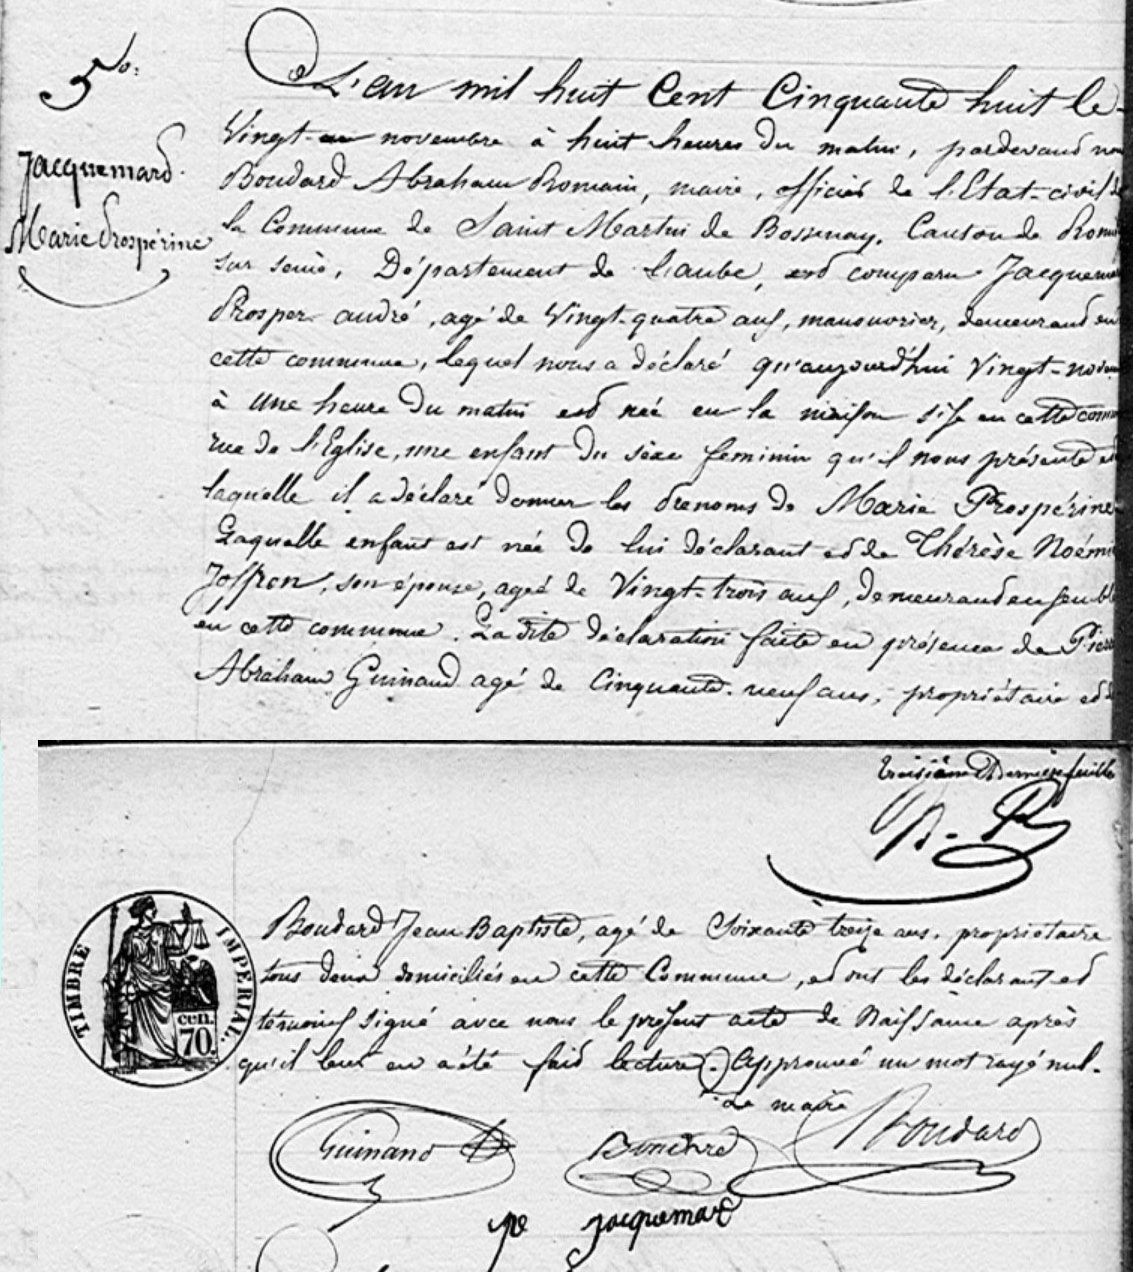 5o:
Jacquemard
Marie Prospérine
L'an mil huit Cent Cinquante huit le
Vingt novembre à huit heures du matin, pardevand nou
Boudard Abraham Romain, maire, officier de l'Etat-civil de
la Commune de Saint Martin de Bossenay, Canton de Romi
sur seine, Département de l'aube, est comparu Jacquemar
Prosper andré, agé de Vingt-quatre ans, manouvrier, demeurand en
cette commune, lequel nous a déclaré qu'aujourd'hui Vingt-novem
à une heure du matin est née en la maison sise en cette comm
rue de l'Eglise, une enfant du sexe feminin qu'il nous présente et
laquelle il a déclaré donner les prenoms de Marie Prospérine
Laquelle enfant est née de lui déclarant et de Thérèse Noémi
Joffron, son épouse, agée de Vingt-trois ans, demeurand ensembl
en cette commune. La dite déclaration faite en présence de Pierr
Abraham Guinand agé de Cinquante-neuf ans, propriétaire et d
troisième et Dernière feuille
Boudard Jean Baptiste, agé de Soixante treize ans, propriétaire
tous deux domiciliés en cette Commune, et ont les déclarant et
témoins signé avec nous le présent acte de Naissance après
qu'il leur en a été fait lecture. Approuvé un mot rayé nul.
Le maire
Guinand Boudard Boudard
Jacquemard
TIMBRE IMPERIAL.
cen.
70.